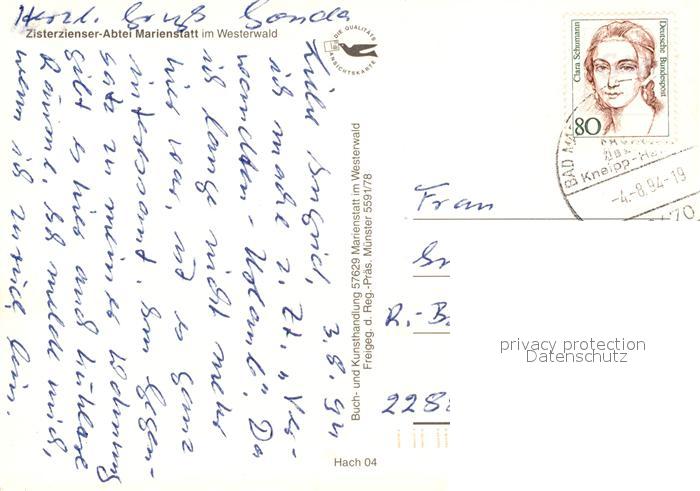 Herzl. Gruß Gonda
Zisterzienser-Abtei Marienstatt im Westerwald
DIE QUALITÄTS
ANSICHTSKARTE
Liebe Ingrid, 3.8.94
ich mache z. Zt. "Ver-
wandten-Urlaub". Da
ich lange nicht mehr
hier war, ist es ganz
interessant. Im Gegen-
satz zu meiner Wohnung
gibt es hier auch kühlere
Räume. Ich melde mich,
wenn ich zurück bin.
Buch- und Kunsthandlung 57629 Marienstatt im Westerwald
Freigeg. d. Reg.-Präs. Münster 5591/78
Hach 04
Clara Schumann
Deutsche Bundespost
80
BAD
Kneipp-He
-4.-8.94-19
Frau
R.-B.
228
privacy protection
Datenschutz